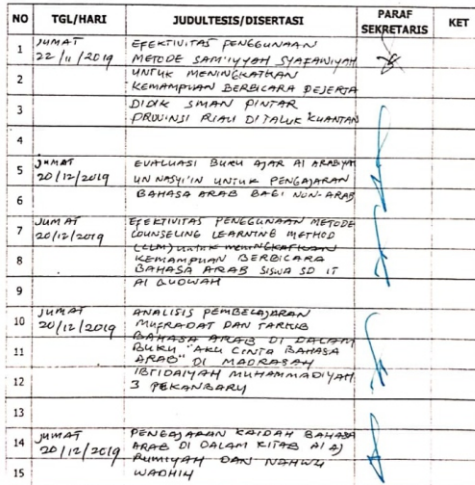 NO TGL/HARI JUDULTESIS/DISERTASI PARAF SEKRETARIS KET
1 JUMAT EFEKTIVITAS PENGGUNAAN
22/11/2019 METODE SAM'IYYAH SYAFAWIYAH
2 UNTUK MENINGKATKAN
KEMAMPUAN BERBICARA PESERTA
3 DIDIK SMAN PINTAR
PROVINSI RIAU DI TALUK KUANTAN
4
5 JUMAT EVALUASI BUKU AJAR Al ARABIYAH
20/12/2019 UN NASYI'IN UNTUK PENGAJARAN
6 BAHASA ARAB BAGI NON-ARAB
7 JUMAT EFEKTIVITAS PENGGUNAAN METODE
20/12/2019 COUNSELING LEARNING METHOD
(CLLM) UNTUK MENINGKATKAN
8 KEMAMPUAN BERBICARA
BAHASA ARAB SISWA SD IT
9 Al QUDWAH
10 JUMAT ANALISIS PEMBELAJARAN
20/12/2019 MUFRADAT DAN TARKIB
BAHASA ARAB DI DALAM
11 BUKU "AKU CINTA BAHASA
ARAB" DI MADRASAH
12 IBTIDAIYAH MUHAMMADIYAH
3 PEKANBARU
13
14 JUMAT PENGAJARAN KAIDAH BAHASA
20/12/2019 ARAB DI DALAM KITAB Al AJ
RUMIYAH DAN NAHWU
15 WADHIH